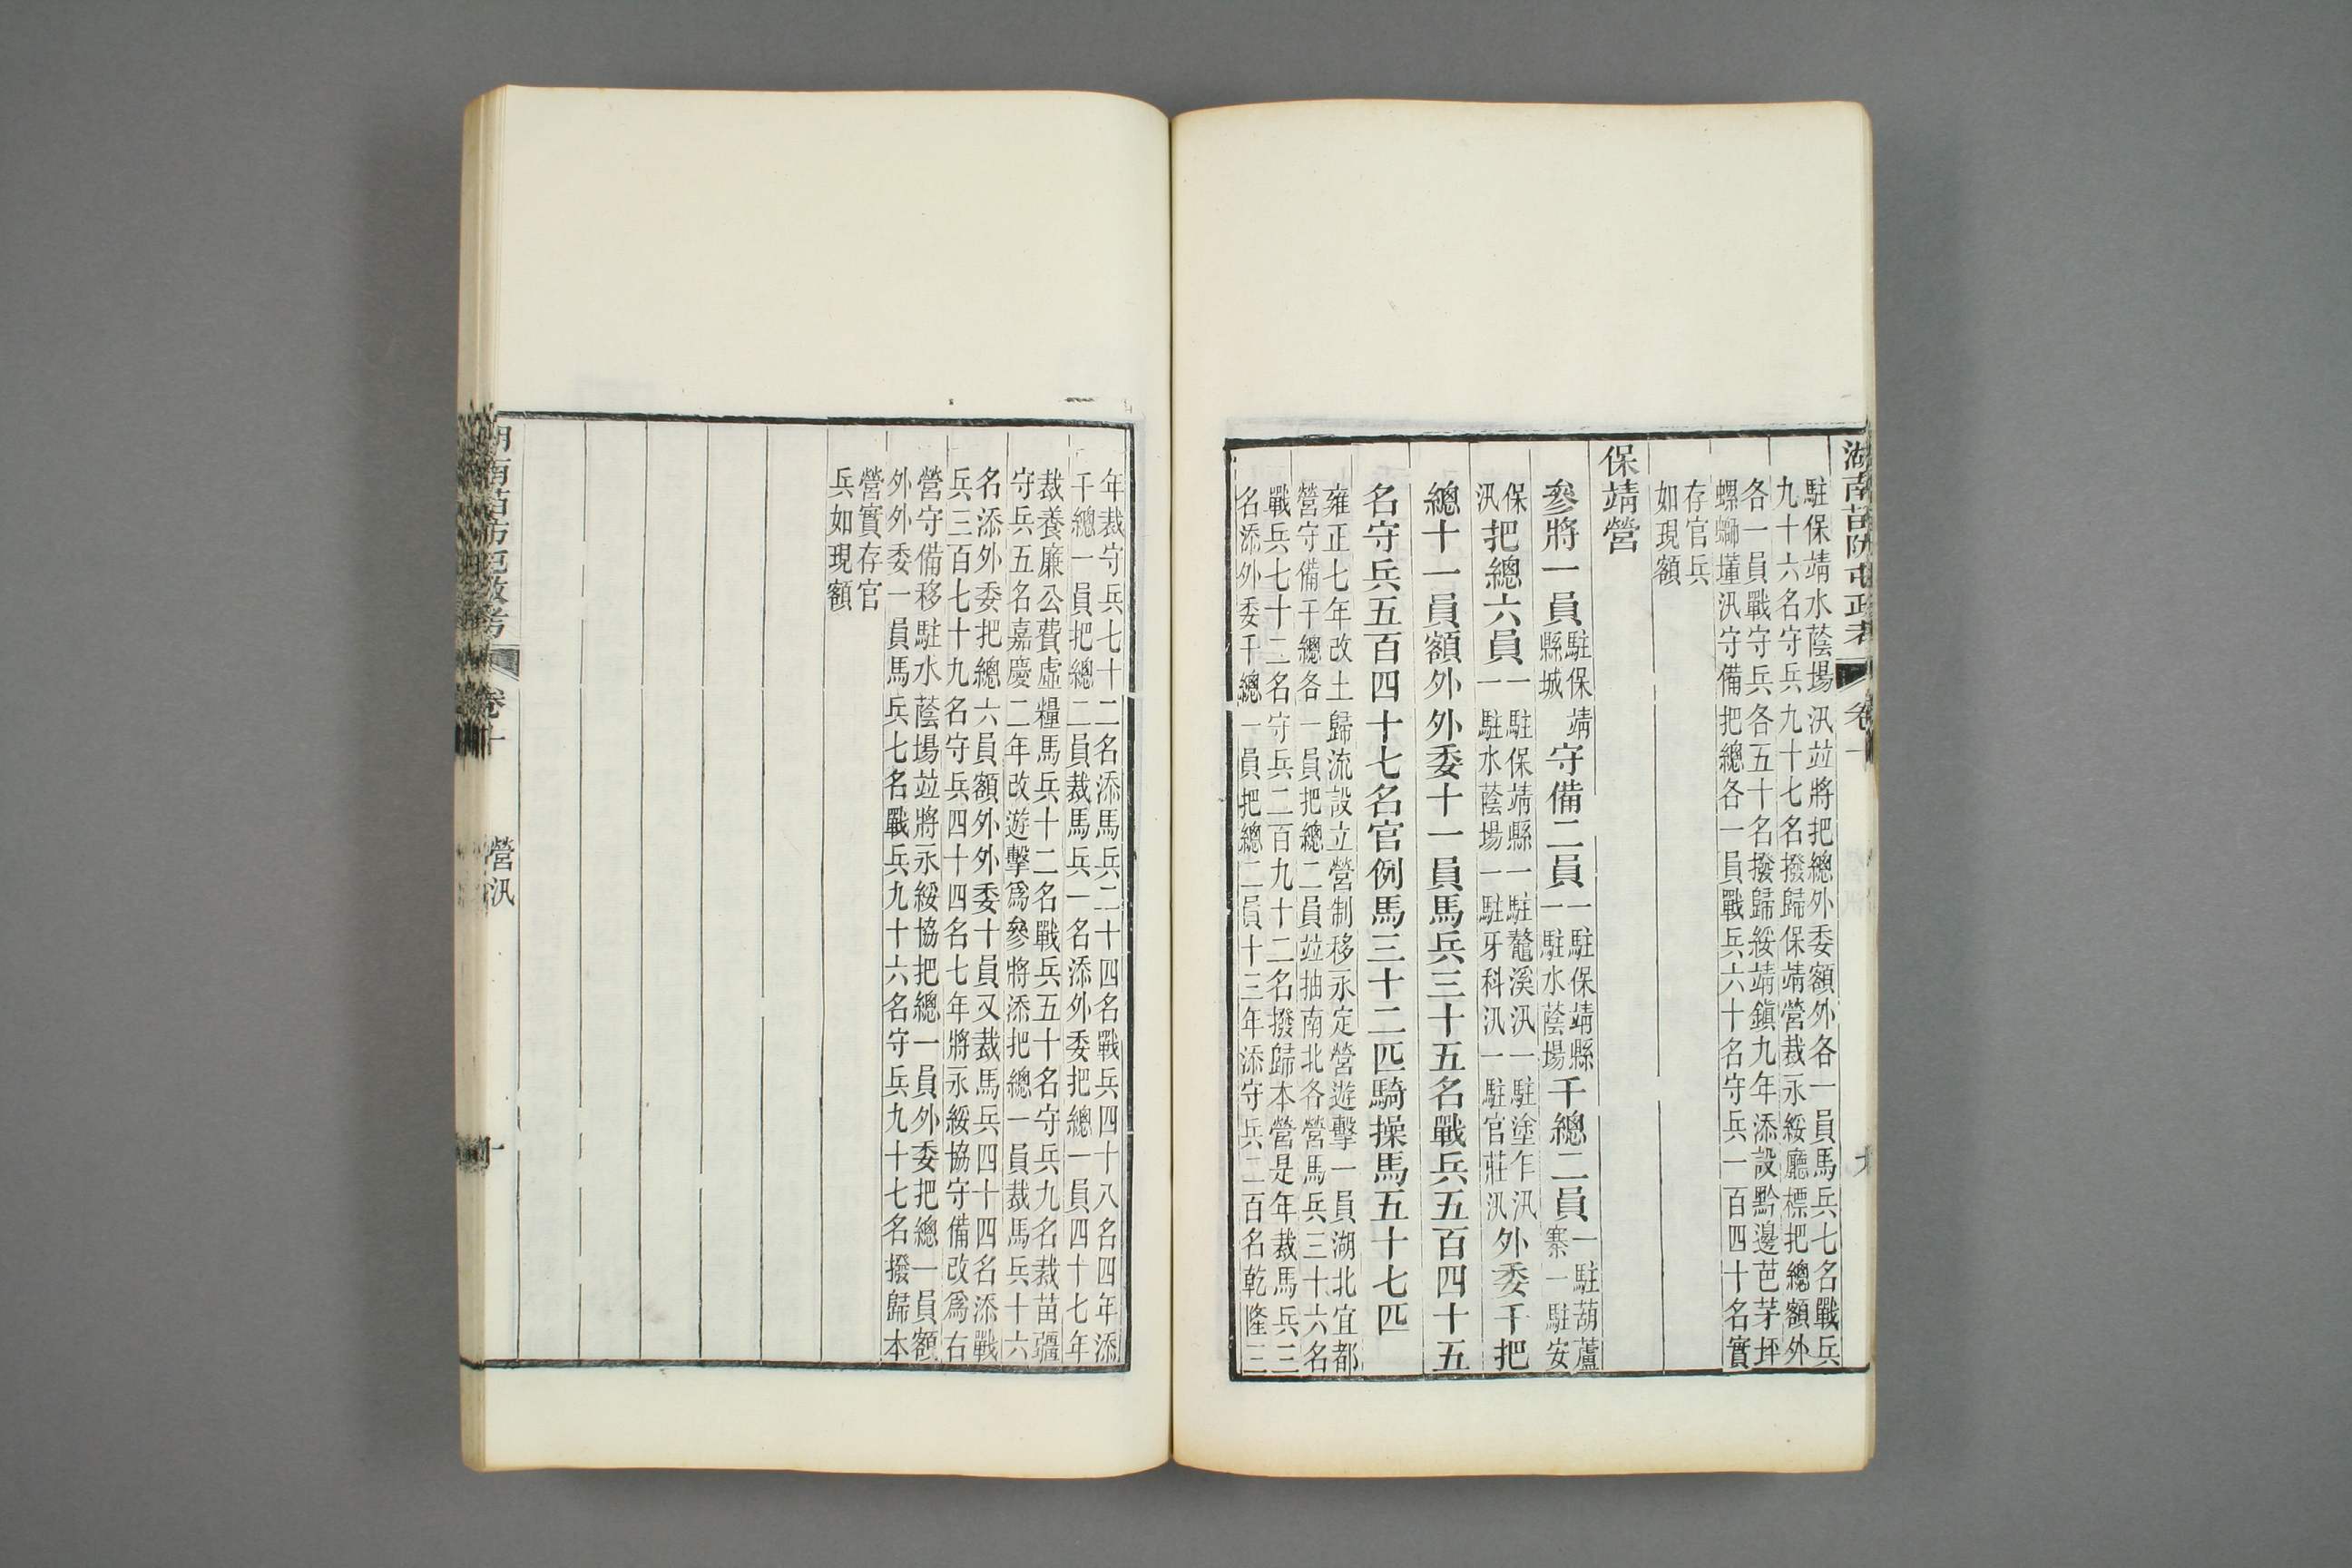 湖南苗防屯政考
卷
駐保靖水蔭場汛竝將把總外委額外各一員馬兵七名戰兵
九十六名守兵九十七名撥歸保靖營裁永綏廳標把總額外
各一員戰守兵各五十名撥歸綏靖鎮九年添設黔邊芭茅坪
螺螄墐汛守備把總各一員戰兵六十名守兵一百四十名實
存官兵
如現額
保靖營
參將一員駐保靖縣城守備二員一駐保靖縣一駐水蔭場千總二員一駐葫蘆寨一駐安
保汛把總六員一駐保靖縣一駐鼇溪汛一駐塗乍汛一駐水蔭場一駐牙科汛一駐官莊汛外委千把
總十一員額外外委十一員馬兵三十五名戰兵五百四十五
名守兵五百四十七名官例馬三十二匹騎操馬五十七匹
雍正七年改土歸流設立營制移永定營遊擊一員湖北宜都
營守備千總各一員把總二員竝抽南北各營馬兵三十六名
戰兵七十二名守兵二百九十二名撥歸本營是年裁馬兵三
名添外委千總一員把總二員十三年添守兵二百名乾隆三
年裁守兵七十二名添馬兵二十四名戰兵四十八名四年添
千總一員把總二員裁馬兵一名添外委把總一員四十七年
裁養廉公費虛糧馬兵十二名戰兵五十名守兵九名裁苗疆
守兵五名嘉慶二年改遊擊爲參將添把總一員裁馬兵十六
名添外委把總六員額外外委十員又裁馬兵四十四名添戰
兵三百七十九名守兵四十四名七年將永綏協守備改爲右
營守備移駐水蔭場竝將永綏協把總一員外委把總一員額
外外委一員馬兵七名戰兵九十六名守兵九十七名撥歸本
營實存官
兵如現額
湖南苗防屯政考
卷十
營汛
十